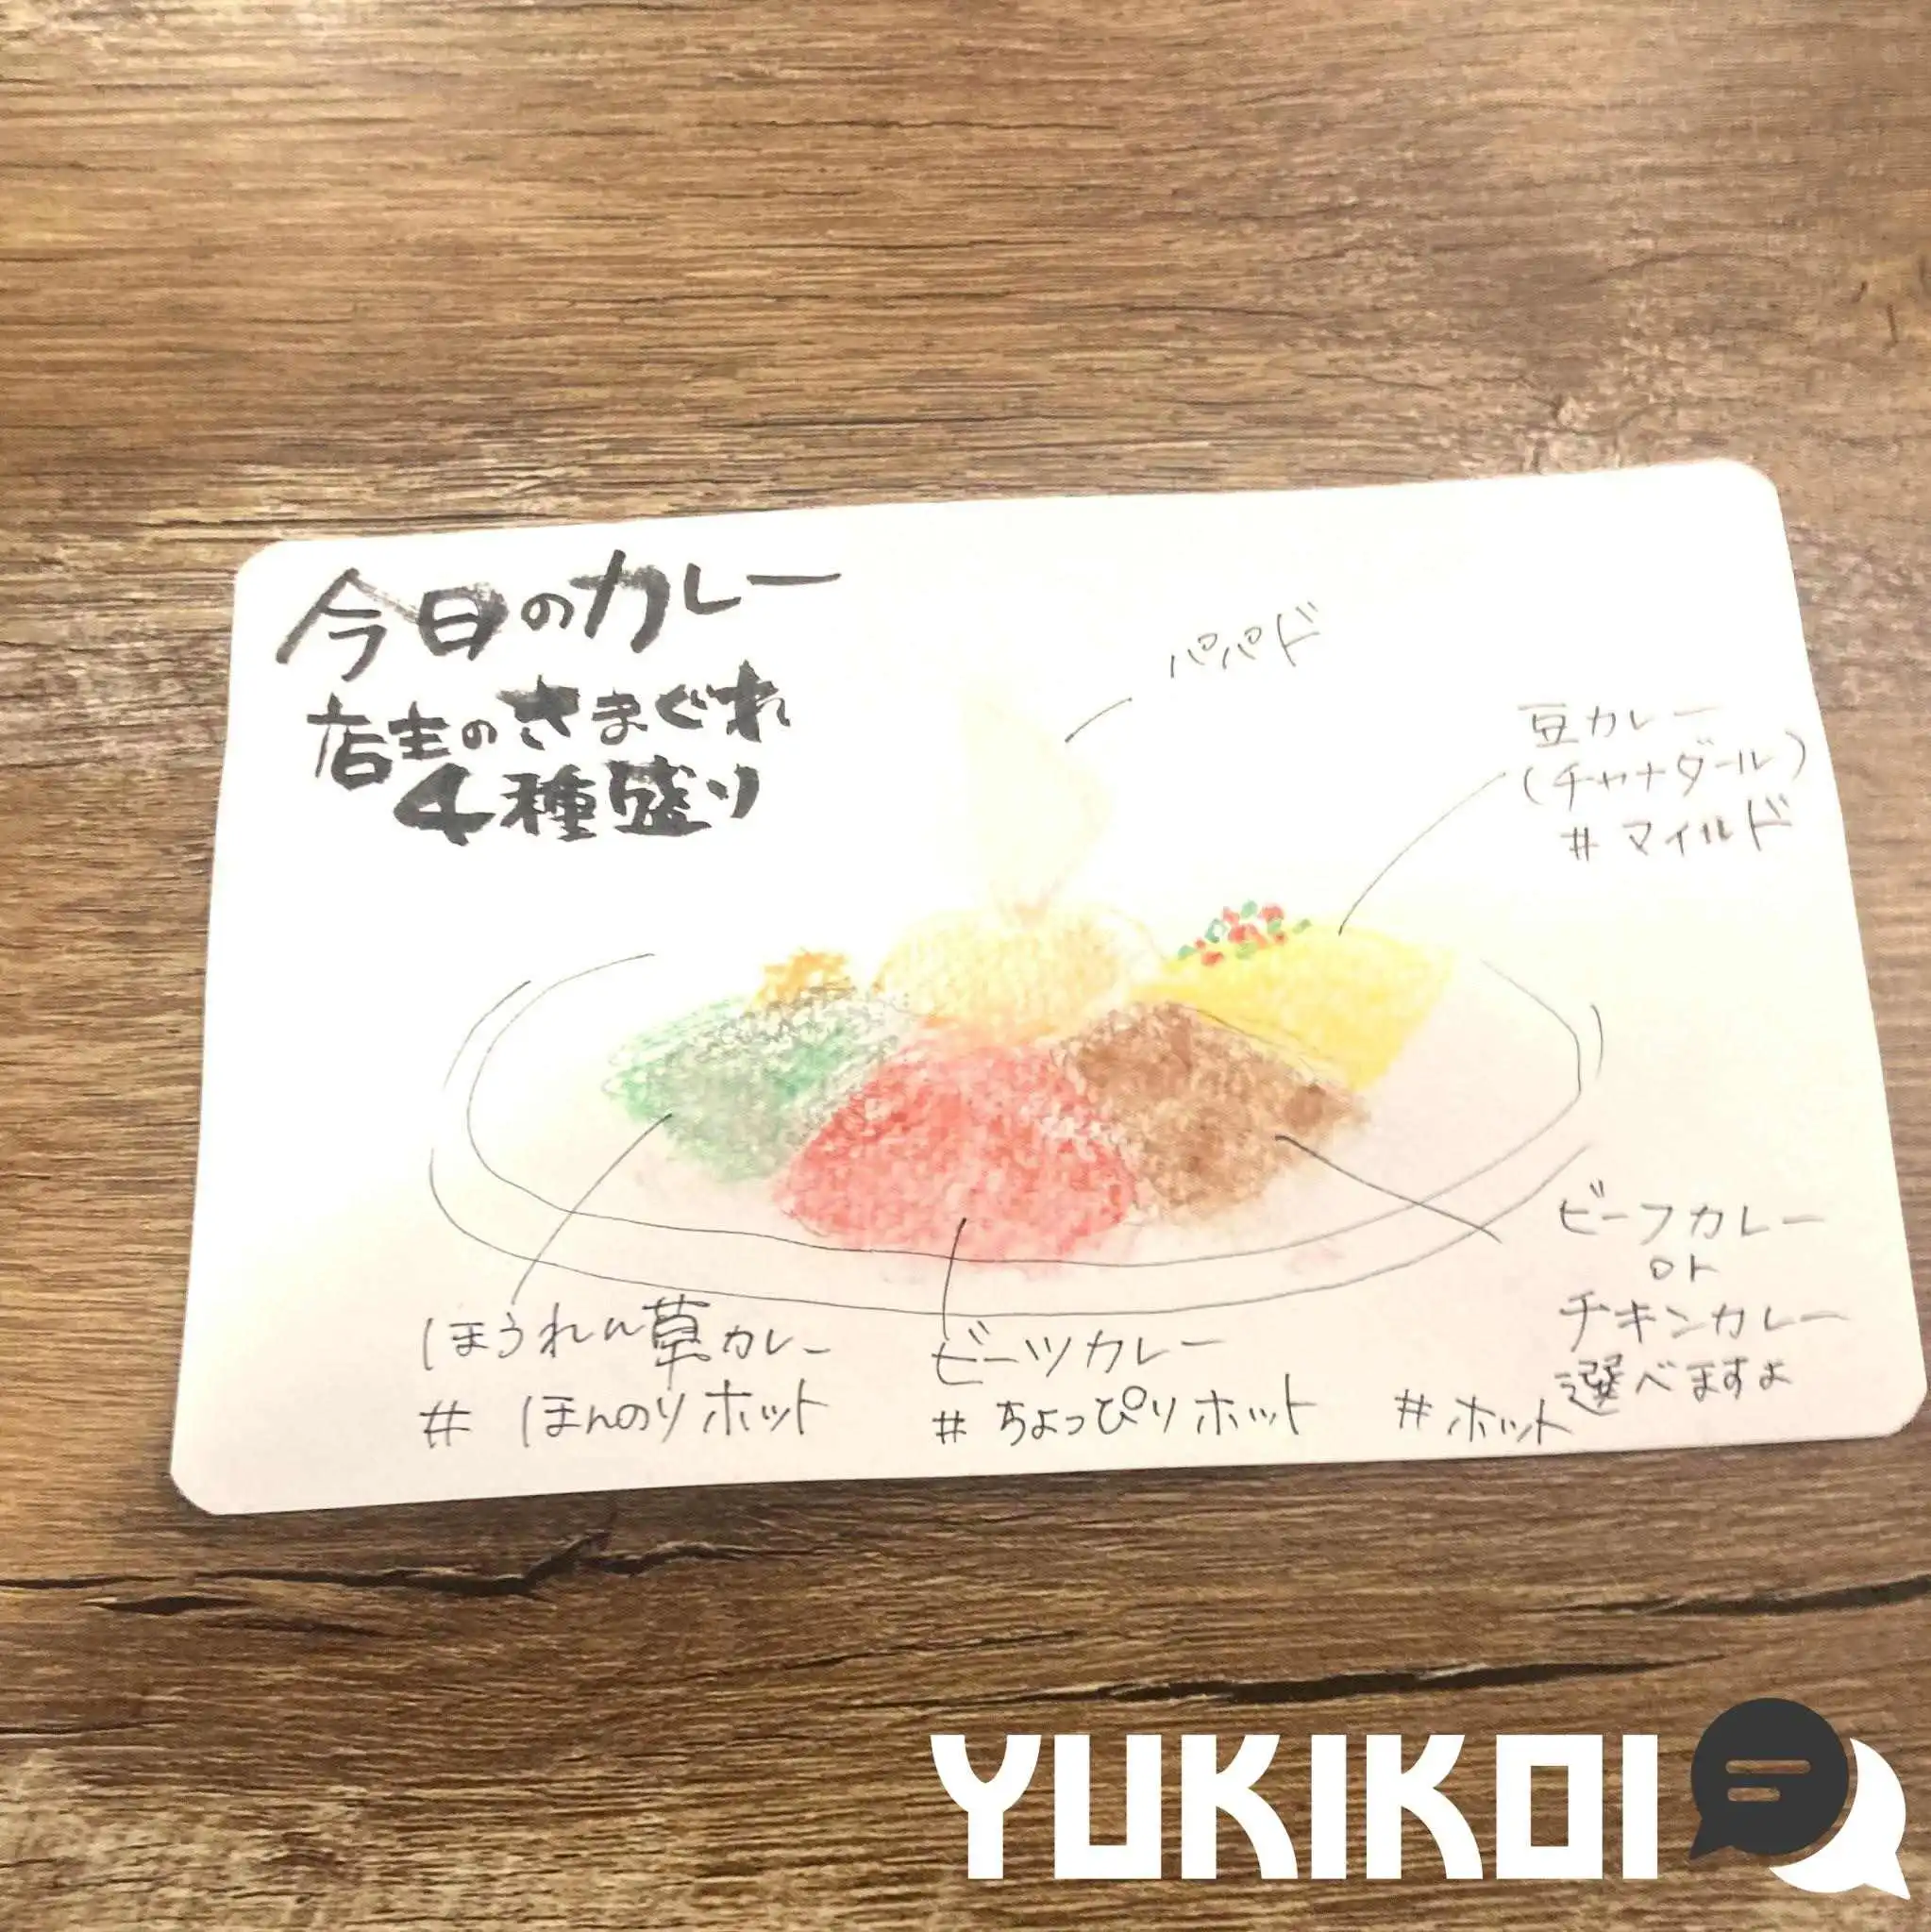 今日のカレー
店主のきまぐれ
4種盛り
パパド
豆カレー
(チャナダール)
# マイルド
ビーフカレー
or
チキンカレー
選べますよ
# ホット
ほうれん草カレー
# ほんのりホット
ビーツカレー
# ちょっぴりホット
YUKIKOI